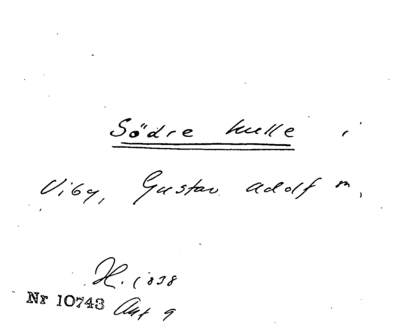 Södre kulle i
Viby, Gustav Adolf
H. 1838
Nr 10743 Akt 9